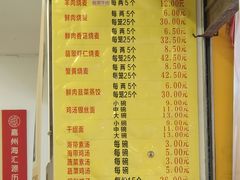 羊肉烧麦 每两5个 12.00元
鲜肉烧麦 每两5个 6.00元
每笼25个 30.00元
鲜肉香菇烧麦 每两5个 6.50元
每笼25个 32.50元
翡翠虾仁烧麦 每两5个 8.50元
每笼25个 42.50元
蟹黄烧麦 每两5个 8.50元
每笼25个 42.50元
鲜肉韭菜蒸饺 每两5个 6.00元
每笼25个 30.00元
鸡汤银丝面 小碗 9.00元
中碗 11.00元
大碗 13.00元
干挑面 小碗 9.00元
中碗 11.00元
大碗 13.00元
每碗 3.00元
海带素汤 每碗 5.00元
蔬菜素汤 每碗 5.00元
蔬菜鸡汤 每碗
嘉州海汇源历